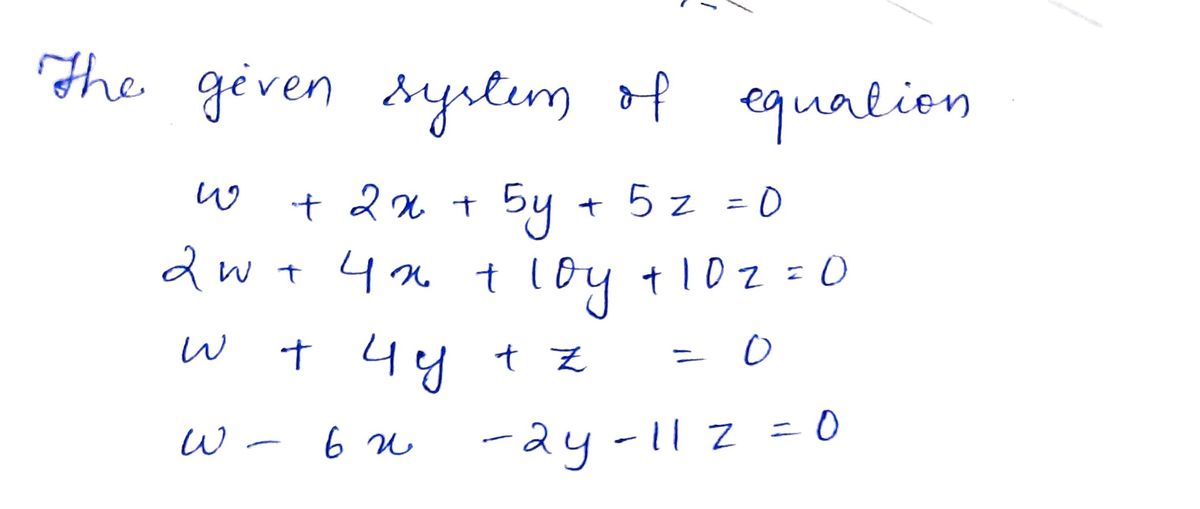 The given system of equation
w + 2x + 5y + 5z = 0
2w + 4x + 10y + 10z = 0
w + 4y + z = 0
w - 6x - 2y - 11z = 0